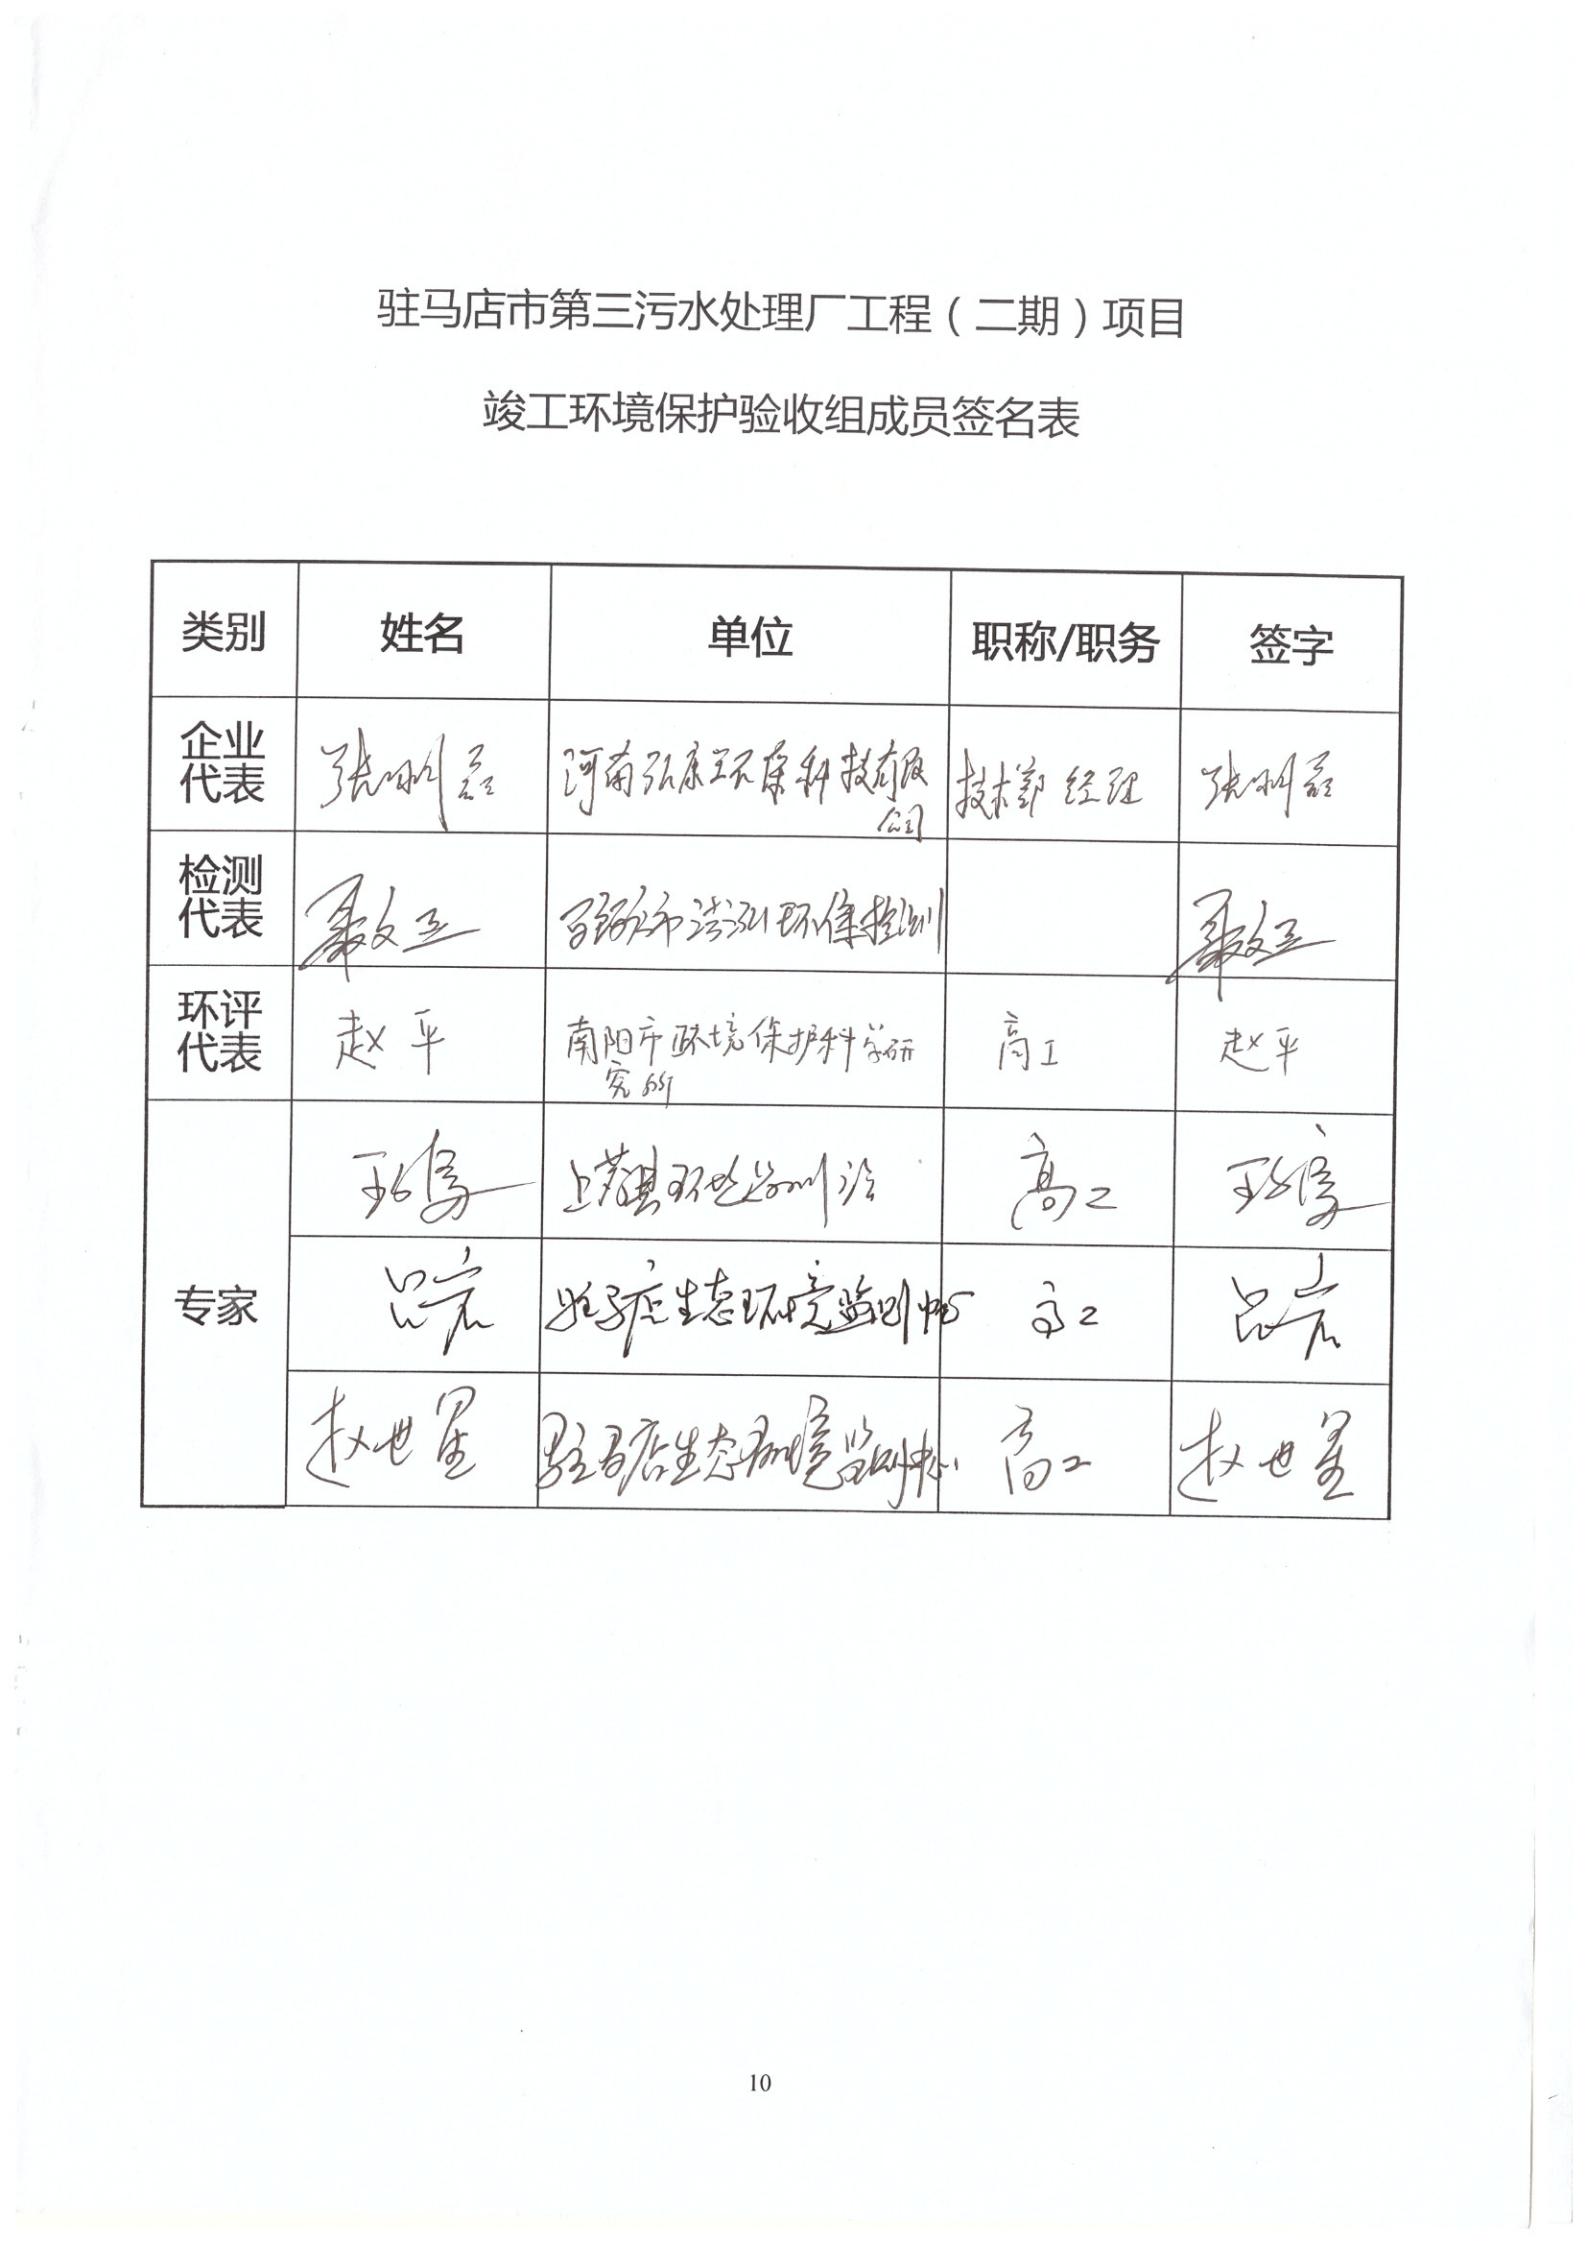 驻马店市第三污水处理厂工程（二期）项目
竣工环境保护验收组成员签名表
类别 姓名 单位 职称/职务 签字
企业代表 张 河南弘康环保科技有限公司 技术部 经理 张
检测代表 聂文 市 环保检测 聂文
环评代表 赵平 南阳市环境保护科学研究所 高工 赵平
专家 王 上蔡县环境监测站 高工 王
吕岩 驻马店生态环境监测中心 高工 吕岩
赵世星 驻马店生态环境监测中心 高工 赵世星
10